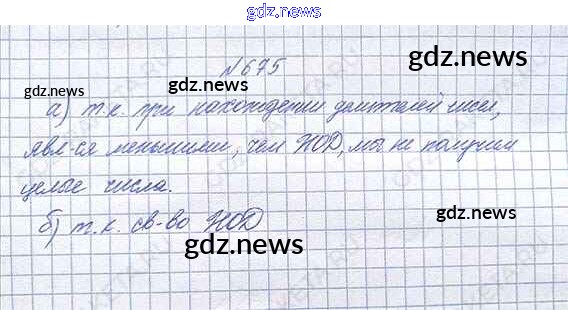 gdz.news
№675
gdz.news
gdz.news
gdz.news
а) т.к. при нахождении делителей чисел,
явл-ся меньшими, чем НОД, мы не получим
целые числа.
gdz.news
б) т.к. св-во НОД
gdz.news
gdz.news
gdz.news